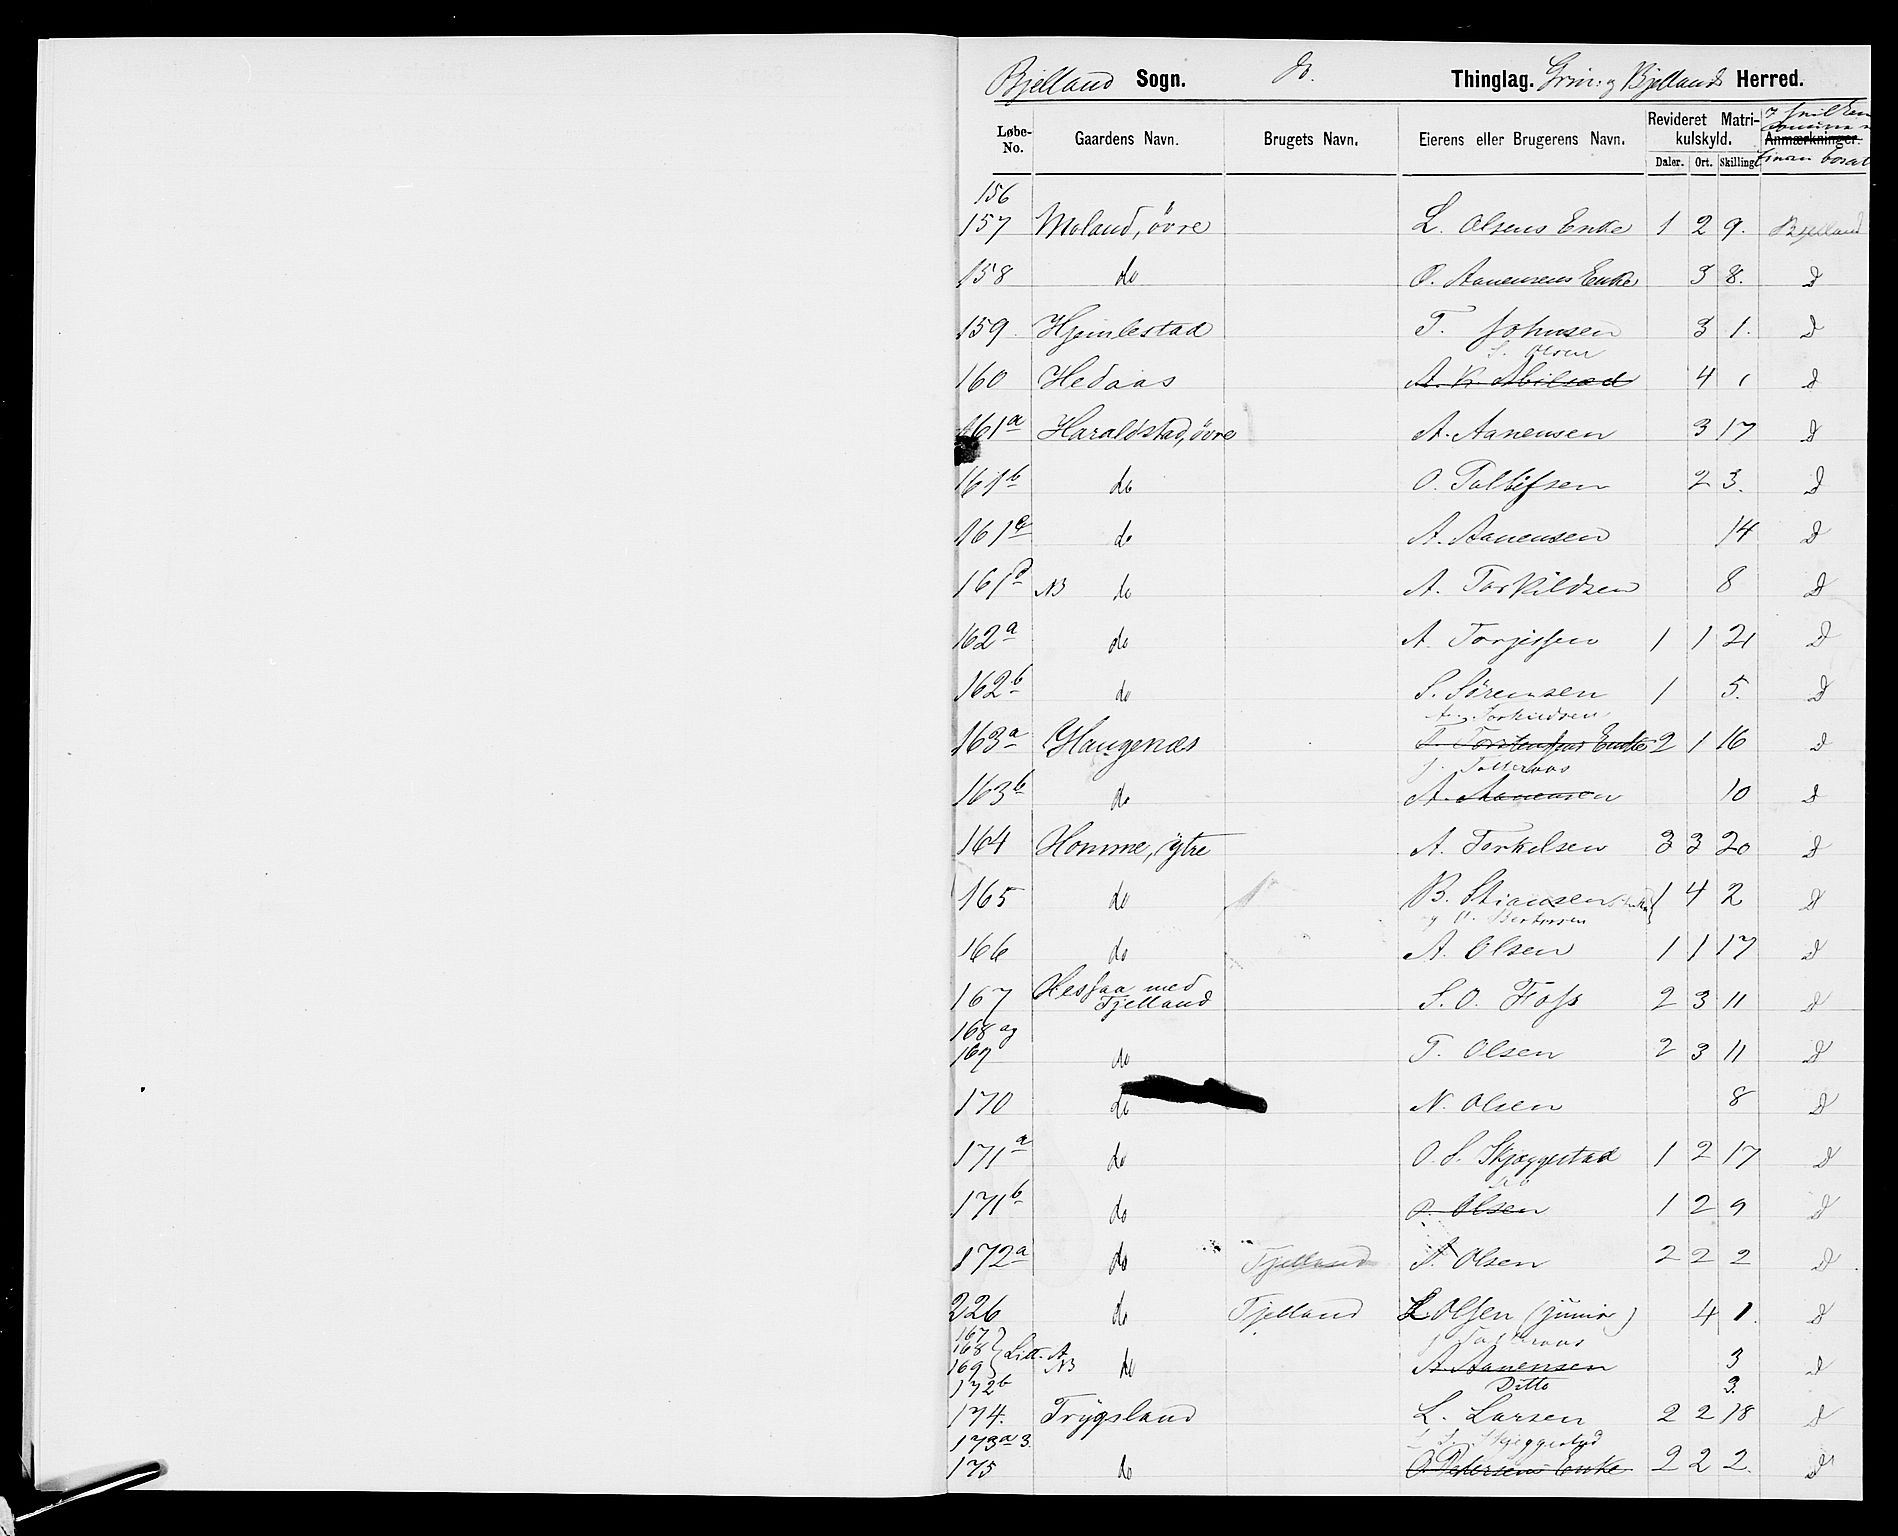 Bjelland Sogn. do. Thinglag. Grin. og Bjellands Herred.
Løbe-No. Gaardens Navn. Brugets Navn. Eierens eller Brugerens Navn. Revideret Matrikulskyld. Anmærkninger.
Daler. Ort. Skilling.
156
157 Moland, övre L. Olsens Enke 1 2 9. Bjelland
158 do O. Aanensens Enke 3 8. D
159. Hjemlestad T. Johnsen 3 1. D
S. Olsen
160 Hedaas A. K. Abilsod 4 1 D
161a Haraldstad, övre A. Aanensen 3 17 D
161b do O. Tallefsen 2 3. D
161c do A. Aanensen 14 D
161d NB do A. Torkildsen 8 D
162a do A. Torjessen 1 1 21 D
162b do S. Sørensen 1 5. D
A. Torkildsen
163a Haugenæs T. Torstensens Enke 2 1 16 D
J. Tolleraas
163b do A. Aanensen 10 D
164 Homme, ytre A. Torkelsen 3 3 20 D
165 do B. Stiansen 1 4 2 D
og
166 do A. Olsen 1 1 17 D
167 Hesaa med Fjelland S. O. Foss 2 3 11 D
168 og
169 do T. Olsen 2 3 11 D
170 do N. Olsen 8 D
171a do O. S. Skjæggestad 1 2 17 D
171b do O. Olsen 1 2 9 D
172a do Fjelland A. Olsen 2 2 2 D
226 do Fjelland L. Olsen (junior) 4 1. D
167
168 Litt. A
169 NB do A. Aanensen 3 D
172b Ditto 3.
174. Trygsland L. Larsen 2 2 18 D
173a3. S. Skjeggestad
175 do O. Pedersens Enke 2 2 2. D